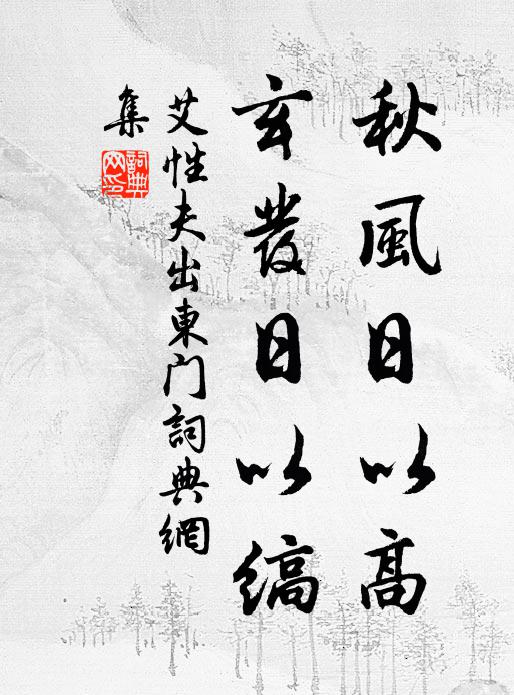 秋風日以高
玄發日以縞
艾性夫出東门詞典網
集
詞典
网印